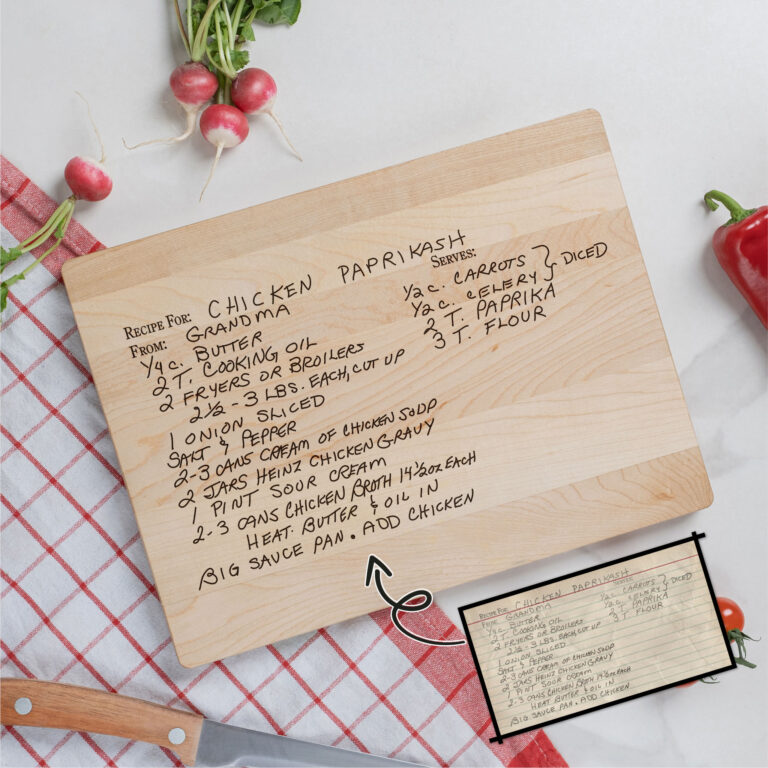 RECIPE FOR: CHICKEN PAPRIKASH
FROM: GRANDMA
SERVES:
1/4 C. BUTTER
2 T. COOKING OIL
2 FRYERS OR BROILERS
2 1/2 - 3 LBS. EACH, CUT UP
1 ONION SLICED
SALT & PEPPER
2-3 CANS CREAM OF CHICKEN SOUP
2 JARS HEINZ CHICKEN GRAVY
1 PINT SOUR CREAM
2-3 CANS CHICKEN BROTH 14 1/2 OZ EACH
HEAT. BUTTER & OIL IN
BIG SAUCE PAN. ADD CHICKEN
1/2 C. CARROTS } DICED
1/2 C. CELERY
2 T. PAPRIKA
3 T. FLOUR
RECIPE FOR: CHICKEN PAPRIKASH
FROM: GRANDMA
SERVES:
1/4 C. BUTTER
2 T. COOKING OIL
2 FRYERS OR BROILERS
2 1/2 - 3 LBS. EACH, CUT UP
1 ONION SLICED
SALT & PEPPER
2-3 CANS CREAM OF CHICKEN SOUP
2 JARS HEINZ CHICKEN GRAVY
1 PINT SOUR CREAM
2-3 CANS CHICKEN BROTH 14 1/2 OZ EACH
HEAT. BUTTER & OIL IN
BIG SAUCE PAN. ADD CHICKEN
1/2 C. CARROTS } DICED
1/2 C. CELERY
2 T. PAPRIKA
3 T. FLOUR